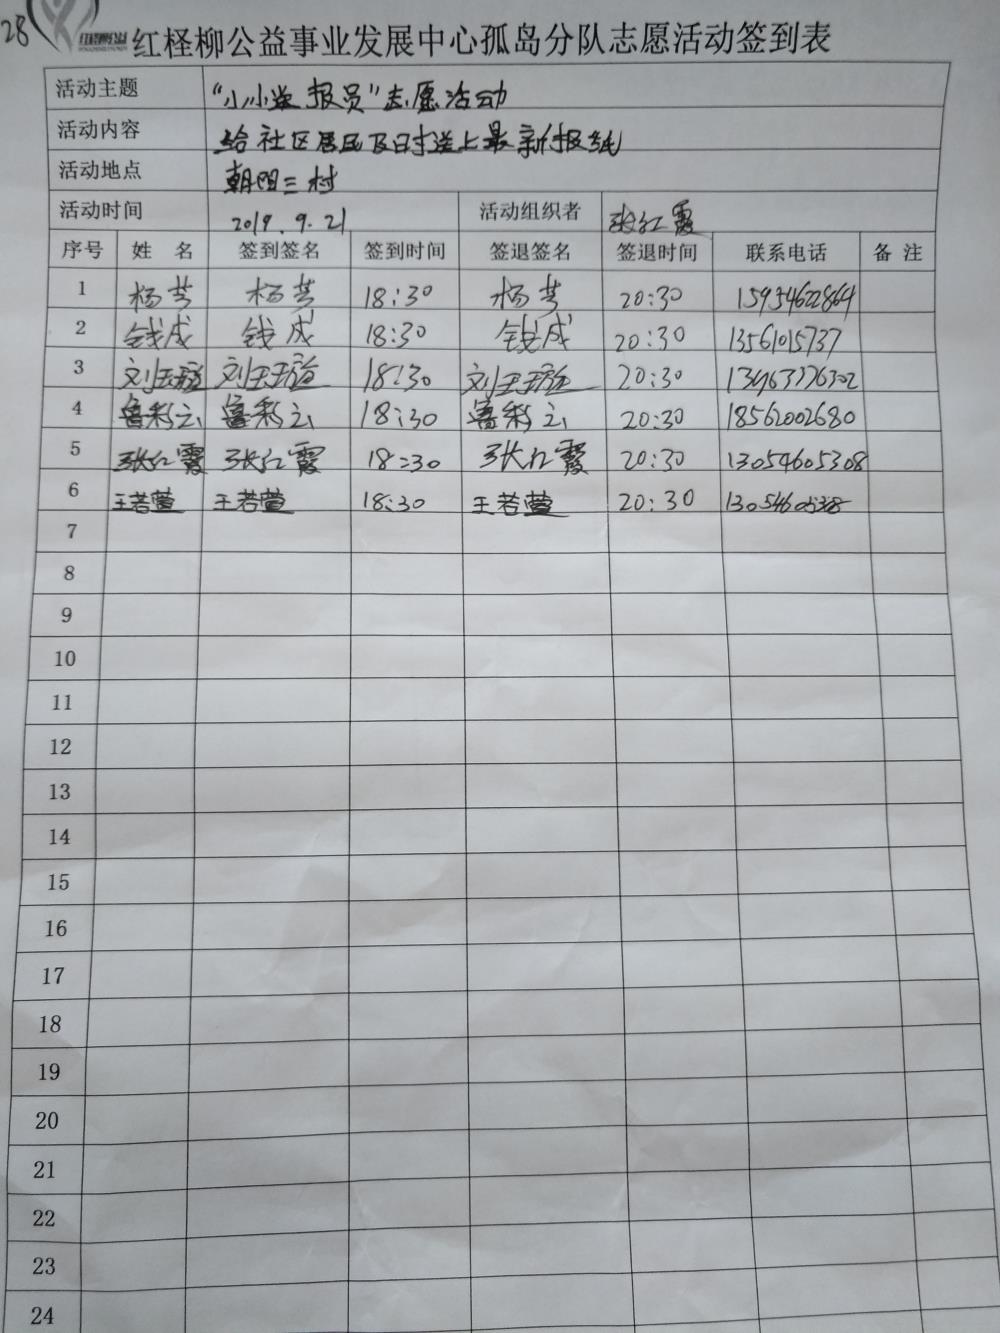 28
红柽柳公益事业发展中心孤岛分队志愿活动签到表
活动主题 "小小送报员"志愿活动
活动内容 给社区居民及时送上最新报纸
活动地点 朝阳三村
活动时间 2019.9.21 活动组织者 张红霞
序号 姓 名 签到签名 签到时间 签退签名 签退时间 联系电话 备 注
1 杨芳 杨芳 18:30 杨芳 20:30 15954622864
2 钱成 钱成 18:30 钱成 20:30 13561015737
3 刘玉璇 刘玉璇 18:30 刘玉璇 20:30
4 鲁彩云 鲁彩云 18:30 鲁彩云 20:30 18562002680
5 张红霞 张红霞 18:30 张红霞 20:30 13054605308
6 王若萱 王若萱 18:30 王若萱 20:30
7
8
9
10
11
12
13
14
15
16
17
18
19
20
21
22
23
24